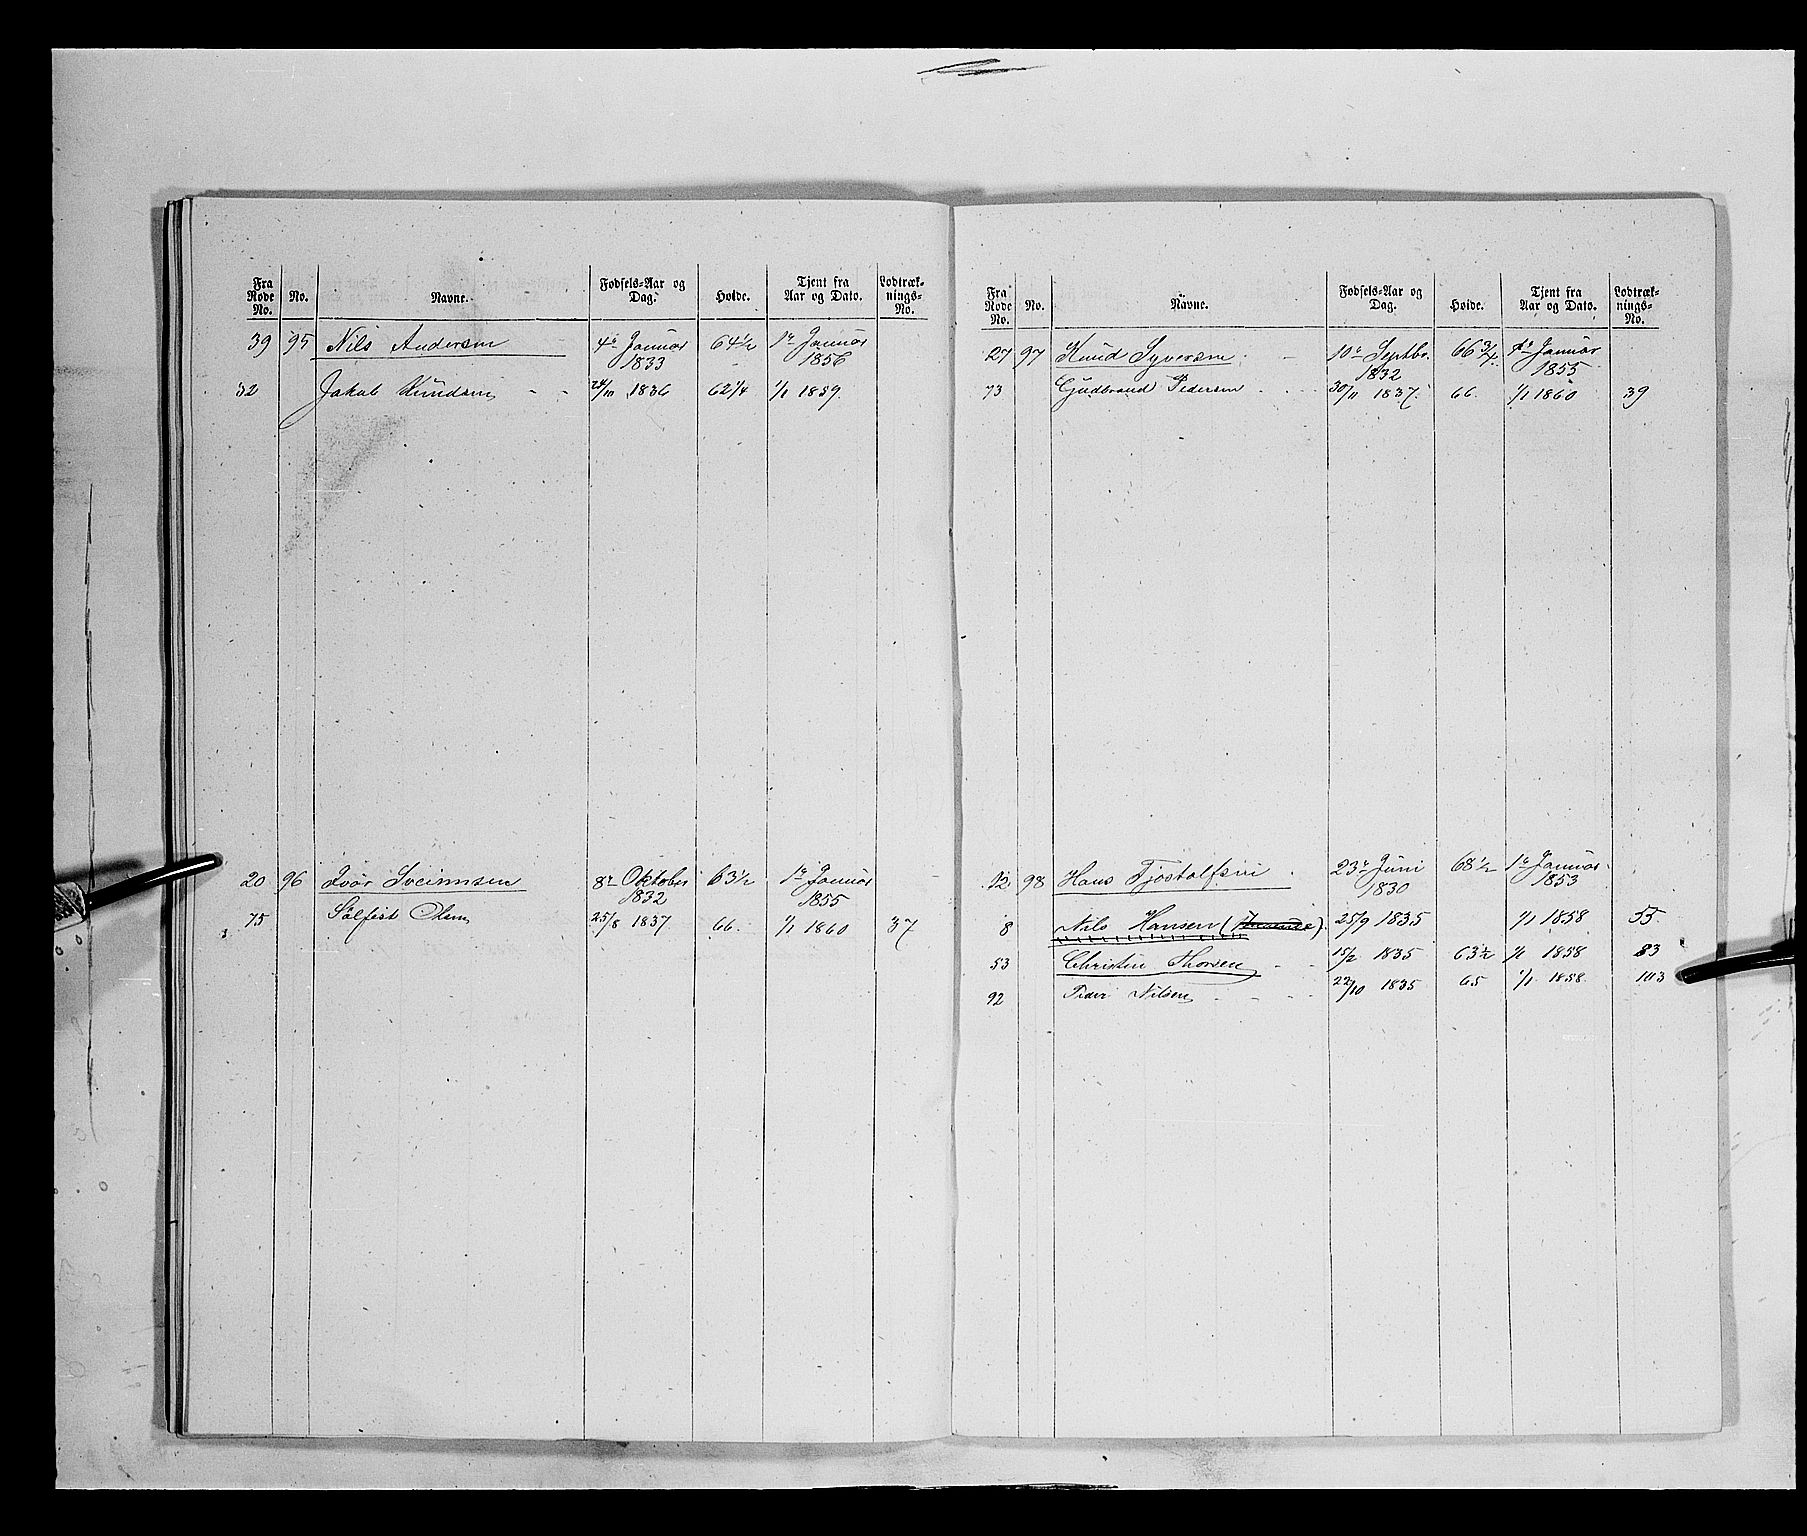 Fra Rode No. | No. | Navne. | Fødsels-Aar og Dag. | Høide. | Tjent fra Aar og Dato. | Lodtræk-nings-No.
39 95 Nils Andersen 4de Januar 1833 64 1/2 1ste Januar 1856
32 Jakob Knudsen - - 24/10 1836 62 1/4 1/1 1859.
20 96 Ivar Sveinnsen 8de Oktober 1832 63 1/2 1ste Januar 1855
75 Sølfest Olsen 25/8 1837. 66. 1/1 1860 37
Fra Rode No. | No. | Navne. | Fødsels-Aar og Dag. | Høide. | Tjent fra Aar og Dato. | Lodtræk-nings-No.
27 97 Knud Syversen - 10de Septbr. 1832 66 3/4 1ste Januar 1855
73 Gudbrand Pedersen 30/11 1837. 66. 1/1 1860 39
12 98 Hans Tjostolfsen 23de Juni 1830 68 1/2 1ste Januar 1853
8 Nils Hansen 25/9 1835 1/1 1858 55
53 Christen Thorsen - - 15/2 1835 63 1/2 1/1 1858 83
92 Peder Nilsen - - - 22/10 1835 65 1/1 1858 103